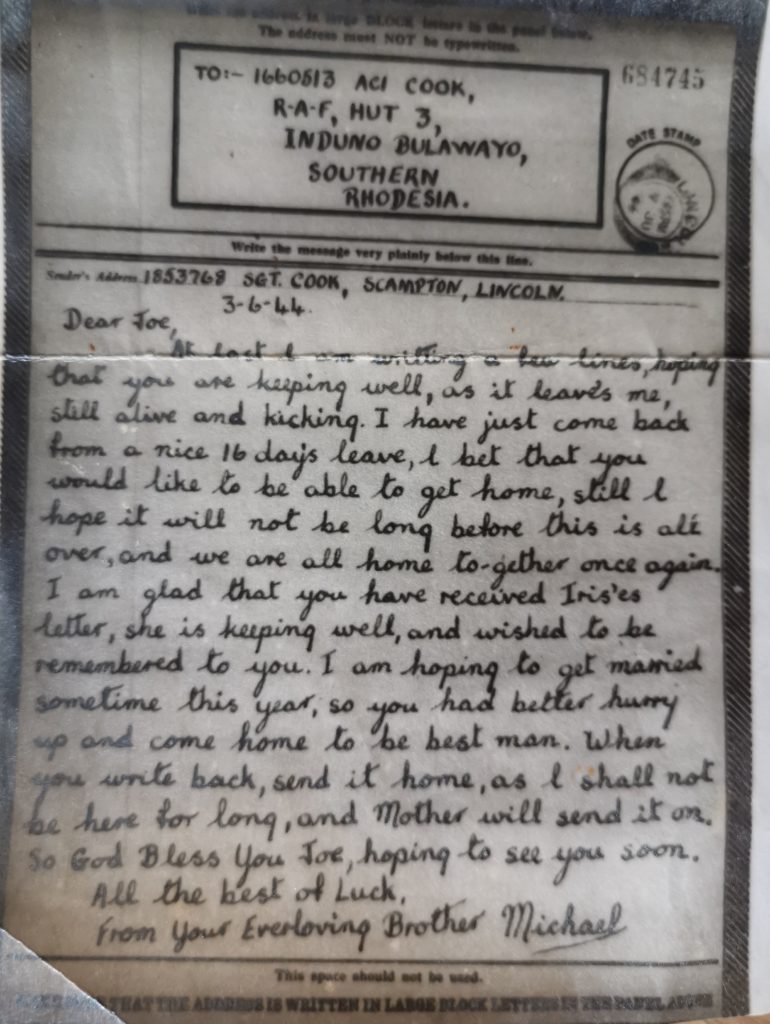 the address in large BLOCK letters in the panel below.
The address must NOT be typewritten.
TO:- 1660513 AC1 COOK,
R-A-F, HUT 3,
INDUNO BULAWAYO,
SOUTHERN
RHODESIA.
684745
DATE STAMP
Write the message very plainly below this line.
Sender's Address 1853768 SGT. COOK, SCAMPTON, LINCOLN.
3-6-44.
Dear Joe,
At last I am writting a few lines, hoping
that you are keeping well, as it leaves me,
still alive and kicking. I have just come back
from a nice 16 days leave, I bet that you
would like to be able to get home, still I
hope it will not be long before this is all
over, and we are all home to-gether once again.
I am glad that you have received Iris'es
letter, she is keeping well, and wished to be
remembered to you. I am hoping to get married
sometime this year, so you had better hurry
up and come home to be best man. When
you write back, send it home, as I shall not
be here for long, and Mother will send it on.
So God Bless You Joe, hoping to see you soon.
All the best of Luck,
From Your Everloving Brother Michael
This space should not be used.
THAT THE ADDRESS IS WRITTEN IN LARGE BLOCK LETTERS IN THE PANEL ABOVE